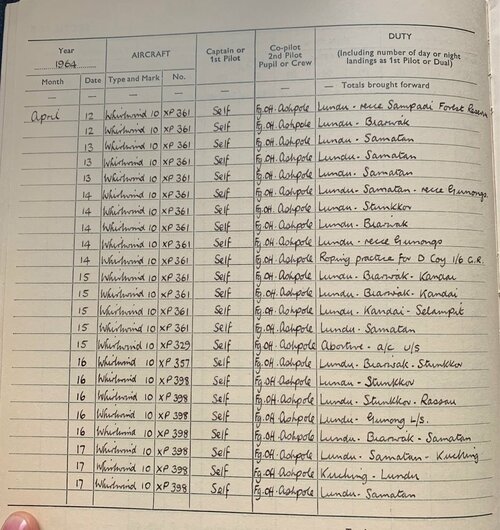 Year AIRCRAFT Captain or 1st Pilot Co-pilot 2nd Pilot Pupil or Crew DUTY (Including number of day or night landings as 1st Pilot or Dual)
1964
Month Date Type and Mark No.
— — — — — — — Totals brought forward
April 12 Whirlwind 10 XP 361 Self Fg.Off. Ashpole Lundu - recce Sampadi Forest Reserve
12 Whirlwind 10 XP 361 Self Fg.Off. Ashpole Lundu - Biawak
13 Whirlwind 10 XP 361 Self Fg.Off. Ashpole Lundu - Samatan
13 Whirlwind 10 XP 361 Self Fg.Off. Ashpole Lundu - Samatan
13 Whirlwind 10 XP 361 Self Fg.Off. Ashpole Lundu - Samatan
14 Whirlwind 10 XP 361 Self Fg.Off. Ashpole Lundu - Samatan - recce Gunongs
14 Whirlwind 10 XP 361 Self Fg.Off. Ashpole Lundu - Stunkkor
14 Whirlwind 10 XP 361 Self Fg.Off. Ashpole Lundu - Biawak
14 Whirlwind 10 XP 361 Self Fg.Off. Ashpole Lundu - recce Gunongs
14 Whirlwind 10 XP 361 Self Fg.Off. Ashpole Roping practice for D Coy 1/6 G.R.
15 Whirlwind 10 XP 361 Self Fg.Off. Ashpole Lundu - Biawak - Kandai
15 Whirlwind 10 XP 361 Self Fg.Off. Ashpole Lundu - Biawak - Kandai
15 Whirlwind 10 XP 361 Self Fg.Off. Ashpole Lundu - Kandai - Selampit
15 Whirlwind 10 XP 361 Self Fg.Off. Ashpole Lundu - Samatan
15 Whirlwind 10 XP 329 Self Fg.Off. Ashpole Abortive - a/c u/s
16 Whirlwind 10 XP 357 Self Fg.Off. Ashpole Lundu - Biawak - Stunkkor
16 Whirlwind 10 XP 398 Self Fg.Off. Ashpole Lundu - Stunkkor
16 Whirlwind 10 XP 398 Self Fg.Off. Ashpole Lundu - Stunkkor - Rassau
16 Whirlwind 10 XP 398 Self Fg.Off. Ashpole Lundu - Gunong L/S.
16 Whirlwind 10 XP 398 Self Fg.Off. Ashpole Lundu - Biawak - Samatan
17 Whirlwind 10 XP 398 Self Fg.Off. Ashpole Lundu - Samatan - Kuching
17 Whirlwind 10 XP 398 Self Fg.Off. Ashpole Kuching - Lundu
17 Whirlwind 10 XP 398 Self Fg.Off. Ashpole Lundu - Samatan